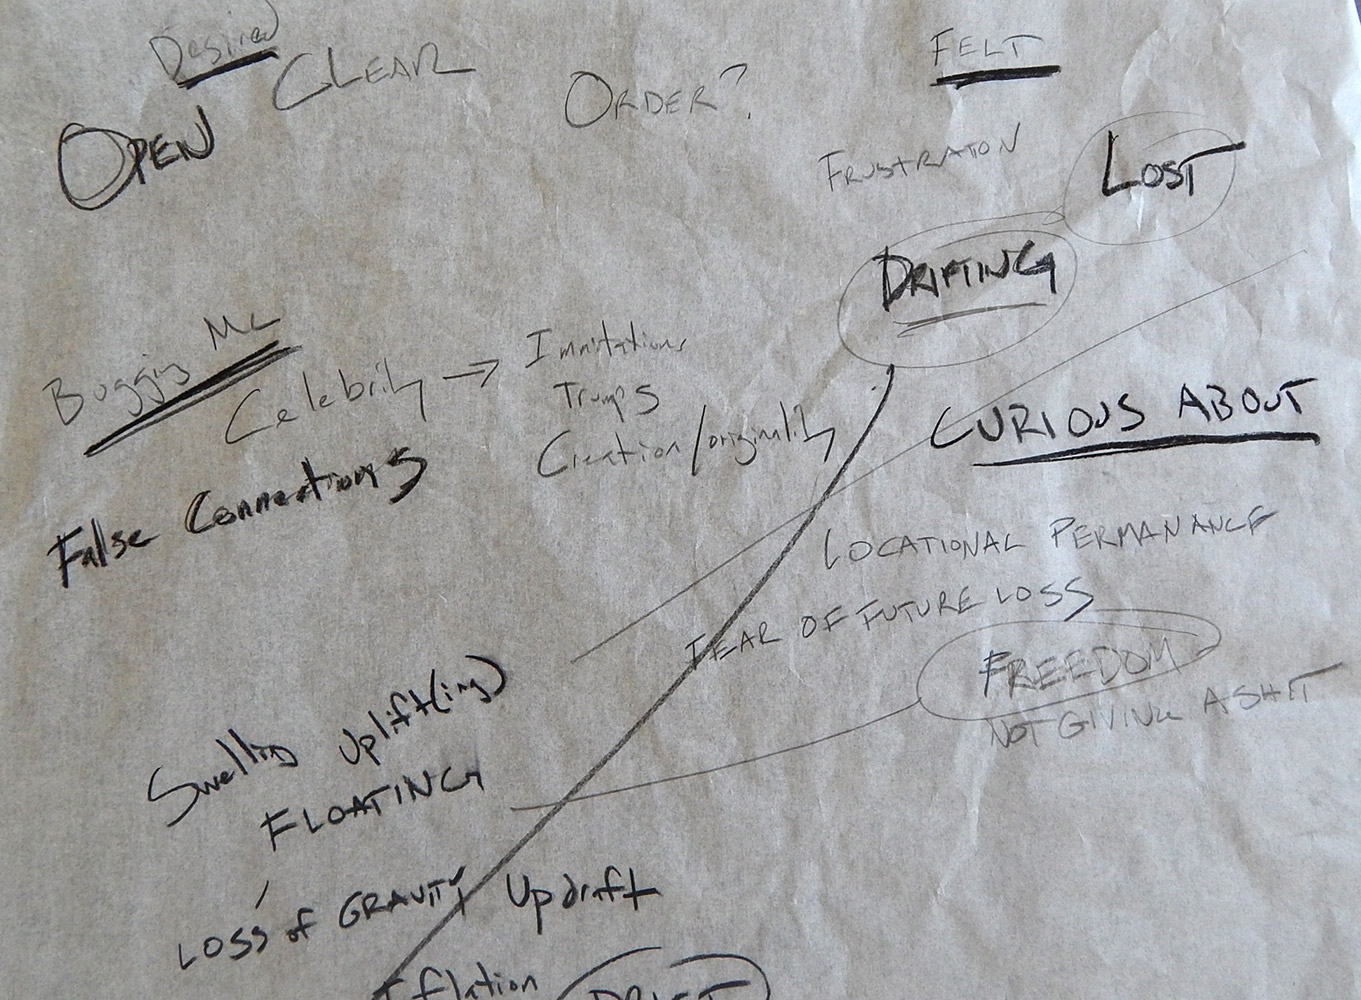 Desired
CLEAR
OPEN
ORDER?
FELT
FRUSTRATON
LOST
DRIFTING
Bugging Me
Celebrity → Immitations
Trumps
Creation/originality
False Connections
CURIOUS ABOUT
LOCATIONAL PERMANANCE
FEAR OF FUTURE LOSS
FREEDOM
NOT GIVING A SHIT
Swelling Uplift(ing)
FLOATING
LOSS of GRAVITY Updraft
Inflation
DRIFT